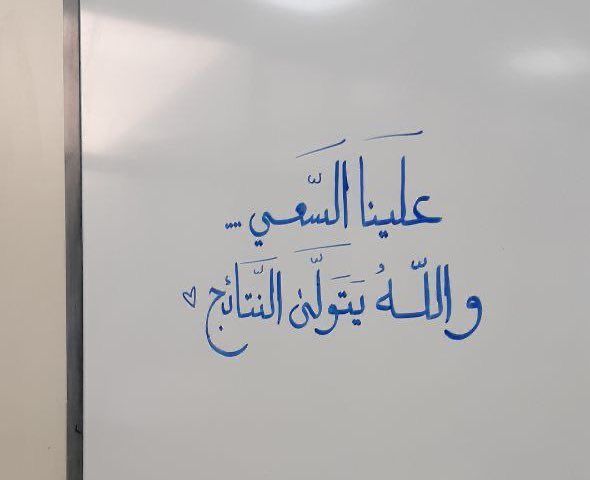 علَينا السَّعي ....
واللّهُ يَتَولَّىٰ النَّتَائج ♡